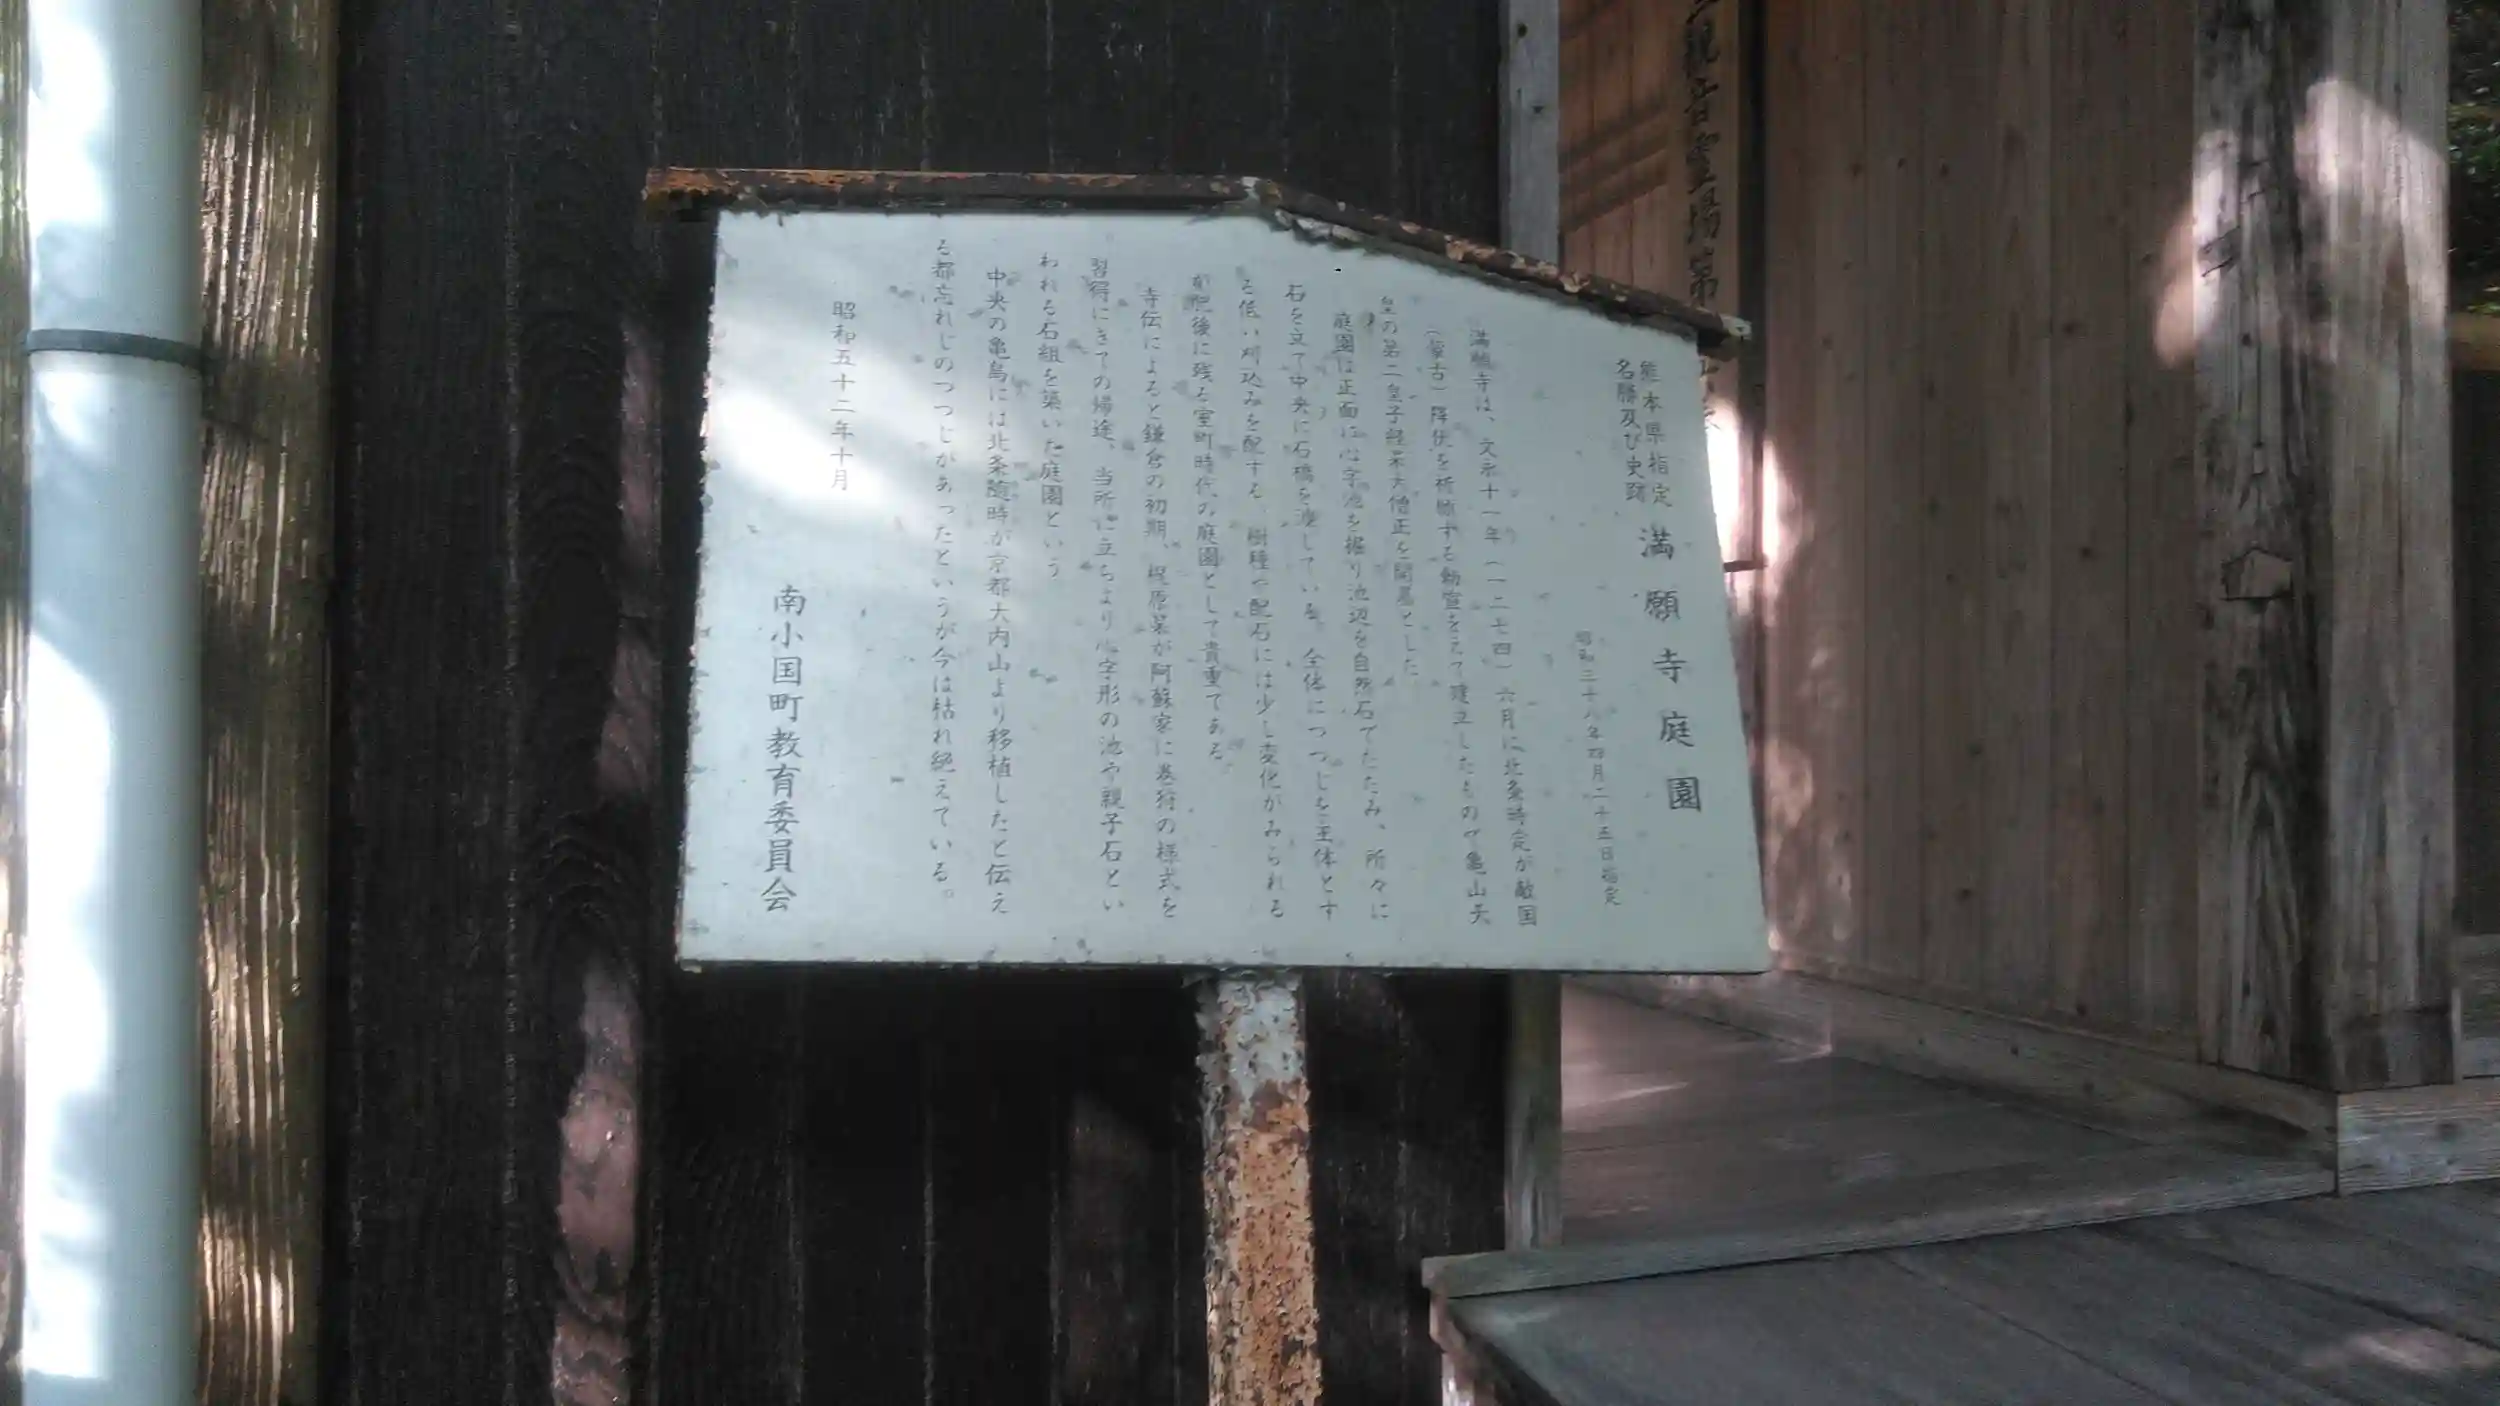 熊本県指定
名勝及び史跡
満願寺庭園
昭和三十八年四月二十五日指定
満願寺は、文永十一年(一二七四)六月に北条時定が敵国
(蒙古)降伏を祈願する勅宣をえて建立したもので亀山天
皇の第二皇子経杲大僧正を開基とした
庭園は正面に心字池を掘り池辺を自然石でたたみ、所々に
石を立て中央に石橋を渡している。全体につつじを主体とす
る低い刈込みを配する 樹種や配石には少し変化がみられる
が肥後に残る室町時代の庭園として貴重である。
寺伝によると鎌倉の初期、梶原某が阿蘇家に巻狩の様式を
習得にきての帰途、当所に立ちより心字形の池や親子石とい
われる石組を築いた庭園という
中央の亀島には北条随時が京都大内山より移植したと伝え
る都忘れじのつつじがあったというが今は枯れ絶えている。
昭和五十二年十月
南小国町教育委員会
観音霊場第